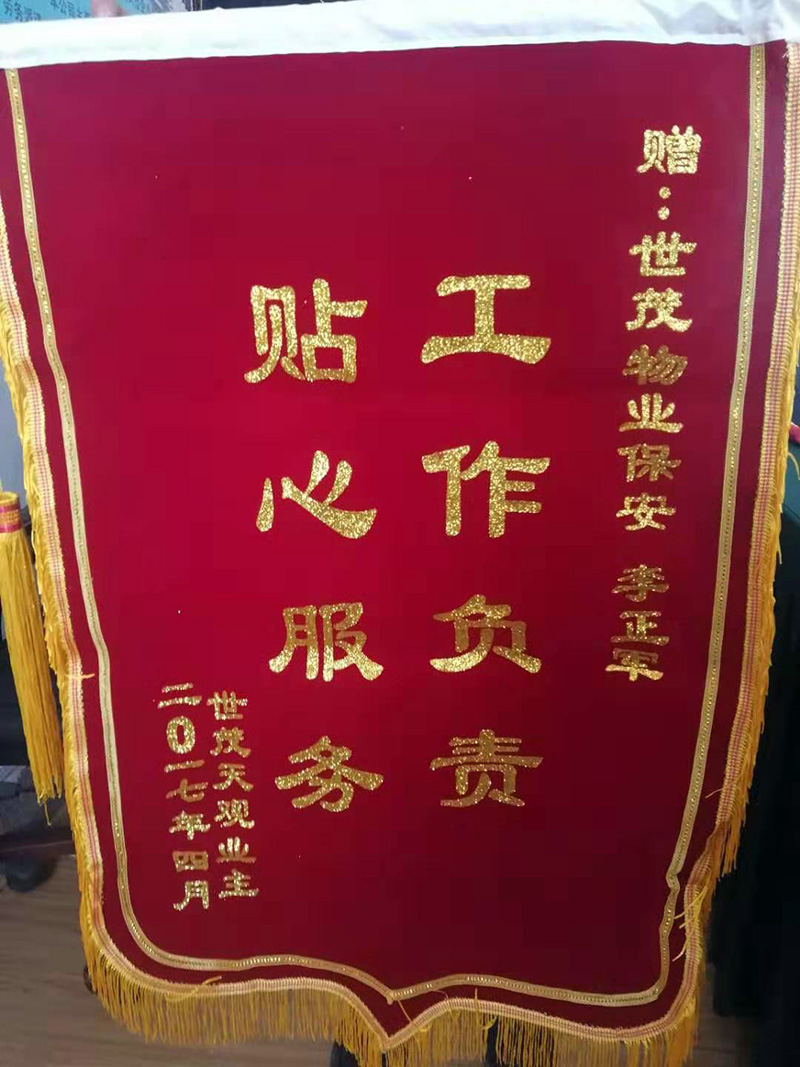 赠：世茂物业保安 李正军
工作负责
贴心服务
世茂天观业主
二0一七年四月